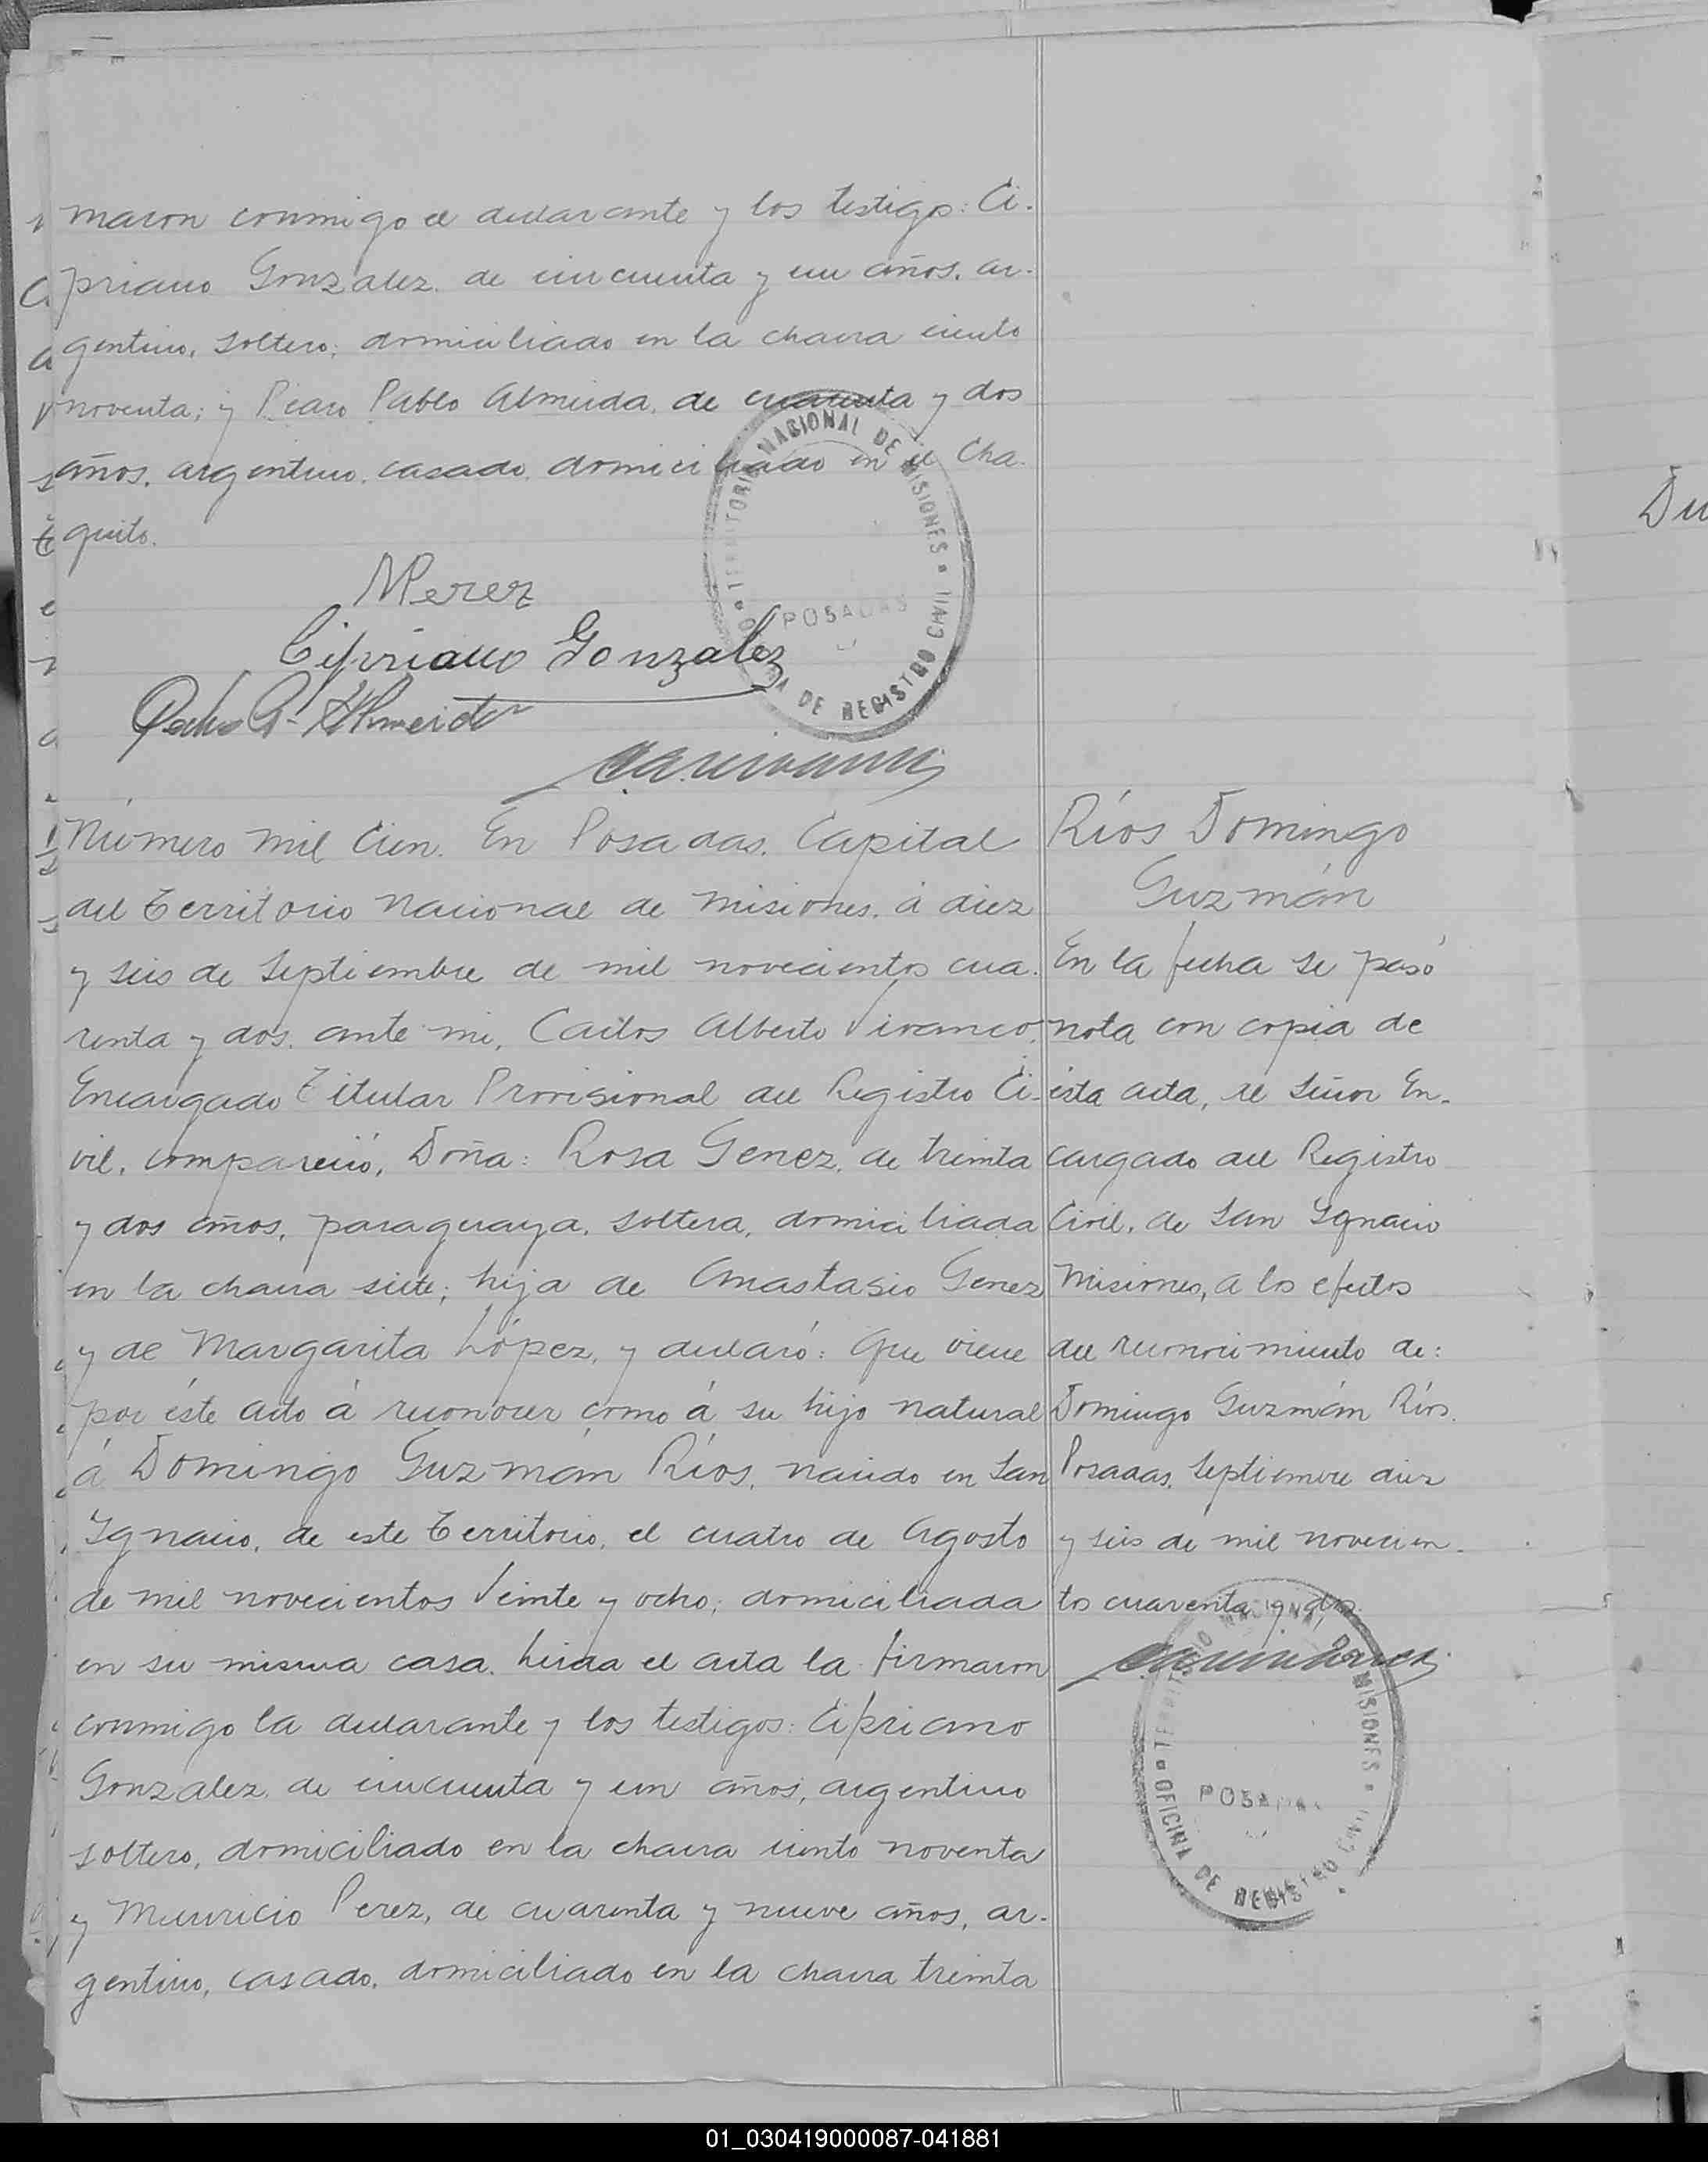 maron conmigo el declarante y los testigo: Ci-
priano Gonzalez, de cincuenta y un años, ar-
gentino, soltero; domiciliado en la chacra ciento
noventa; y Pedro Pablo Almeida, de cuarenta y dos
años, argentino, casado, domiciliado en el Cha-
quito.
MPerez
Cipriano Gonzalez
Pedro P. Almeida
TERRITORIO NACIONAL DE MISIONES
OFICINA DE REGISTRO CIVIL
POSADAS
Número mil cien. En Posadas, Capital
del Territorio Nacional de Misiones, á diez
y seis de Septiembre de mil novecientos cua-
renta y dos, ante mi, Carlos Alberto Vivanco,
Encargado Titular Provisional del Registro Ci-
vil, compareció, Doña: Rosa Genez, de treinta
y dos años, paraguaya, soltera, domiciliada
en la chacra siete; hija de Anastasio Genez
y de Margarita López, y declaró: Que viene
por éste acto á reconocer como á su hijo natural
á Domingo Guzmán Ríos, nacido en San
Ignacio, de este Territorio, el cuatro de Agosto
de mil novecientos veinte y ocho; domiciliada
en su misma casa. Leida el acta la firmaron
conmigo la declarante y los testigos: Cipriano
Gonzalez, de cincuenta y un años, argentino
soltero, domiciliado en la chacra ciento noventa
y Mauricio Perez, de cuarenta y nueve años, ar-
gentino, casado, domiciliado en la chacra treinta
Ríos Domingo
Guzmán
En la fecha se pasó
nota con copia de
ésta acta, al Señor En-
cargado del Registro
Civil, de San Ignacio
Misiones, a los efectos
del reconocimiento de:
Domingo Guzmán Ríos.
Posadas, Septiembre diez
y seis de mil novecien-
tos cuarenta y dos.
TERRITORIO NACIONAL DE MISIONES
OFICINA DE REGISTRO CIVIL
POSADAS
Du
01_030419000087-041881